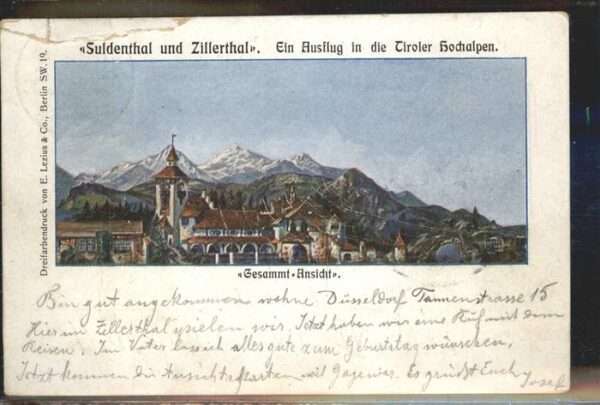 «Suldenthal und Zillerthal». Ein Ausflug in die Tiroler Hochalpen.
Dreifarbendruck von E. Lezius & Co., Berlin SW. 19.
«Gesammt-Ansicht».
Bin gut angekommen wohne Düsseldorf Tannenstrasse 15
Hier im Zillesthal spielen wir. Jetzt haben wir eine Ruf mit dem
Reisen. Im Vater lass ich alles gute zum Geburtstag wünschen,
Jetzt kommen die Ansichtskarten mit Es grüßt Euch
Josef